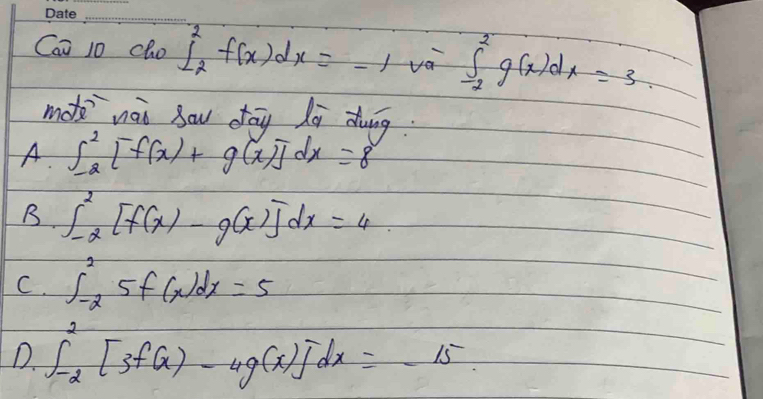 Date
Câu 10 cho ∫₋₂² f(x)dx = -1 và ∫₋₂² g(x)dx = 3.
mđề nào sau đây là đúng:
A. ∫₋₂² [f(x) + g(x)]dx = 8
B. ∫₋₂² [f(x) - g(x)]dx = 4.
C. ∫₋₂² 5f(x)dx = 5
D. ∫₋₂² [3f(x) - 4g(x)]dx = -15.